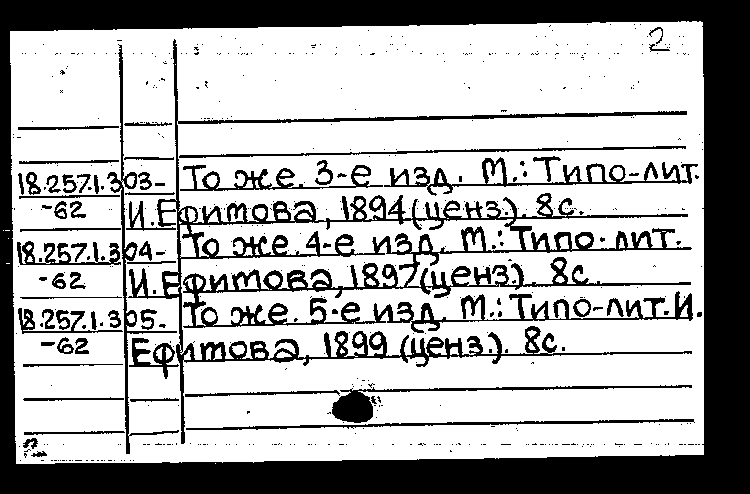 2
18.257.1.303- То же. 3-е изд. М.: Типо-лит.
-62 И. Ефитова, 1894 (ценз.). 8с.
18.257.1.304- То же. 4-е изд. М.: Типо-лит.
-62 И. Ефитова, 1897 (ценз.). 8с.
18.257.1.305- То же. 5-е изд. М.: Типо-лит. И.
-62 Ефитова, 1899 (ценз.). 8с.